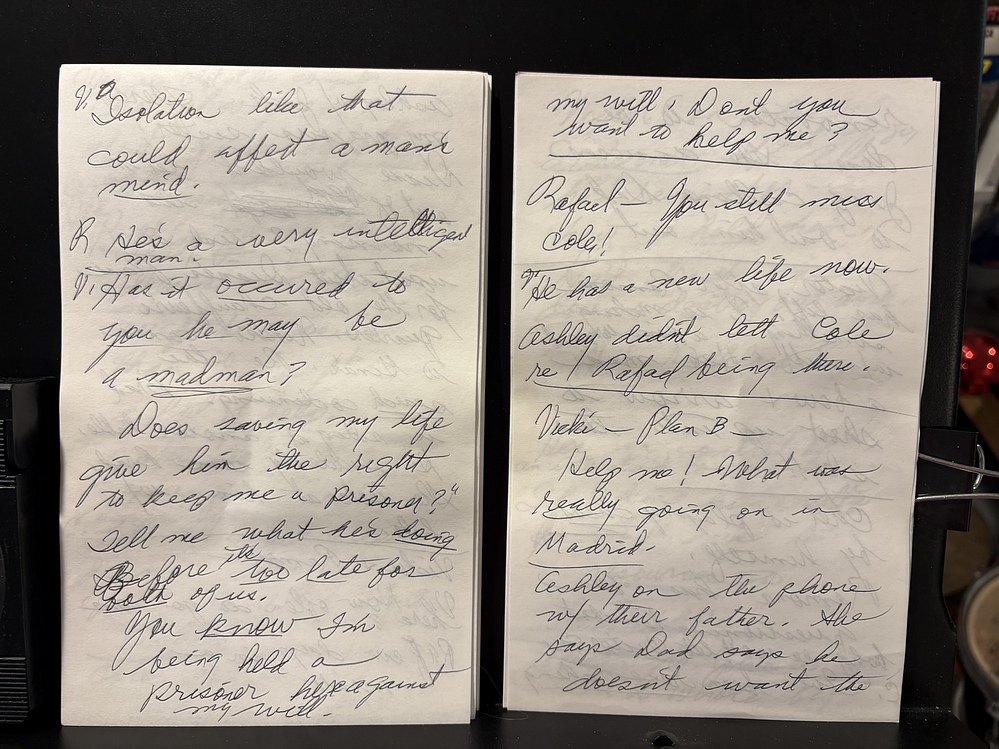 V: "Isolation like that
could affect a man's
mind.
R He's a very intelligent
man.
V: Has it occured to
you he may be
a madman?
Does saving my life
give him the right
to keep me a prisoner?"
Tell me what he's doing
Before it's too late for
both of us.
You know I'm
being held a
prisoner here against
my will.
my will. Don't you
want to help me?
Rafael — You still miss
Cole!
V: He has a new life now.
Ashley didn't tell Cole
re/ Rafael being there.
Vicki — Plan B —
Help me! What was
really going on in
Madrid.
Ashley on the phone
w/ their father. She
says Dad says he
doesn't want the